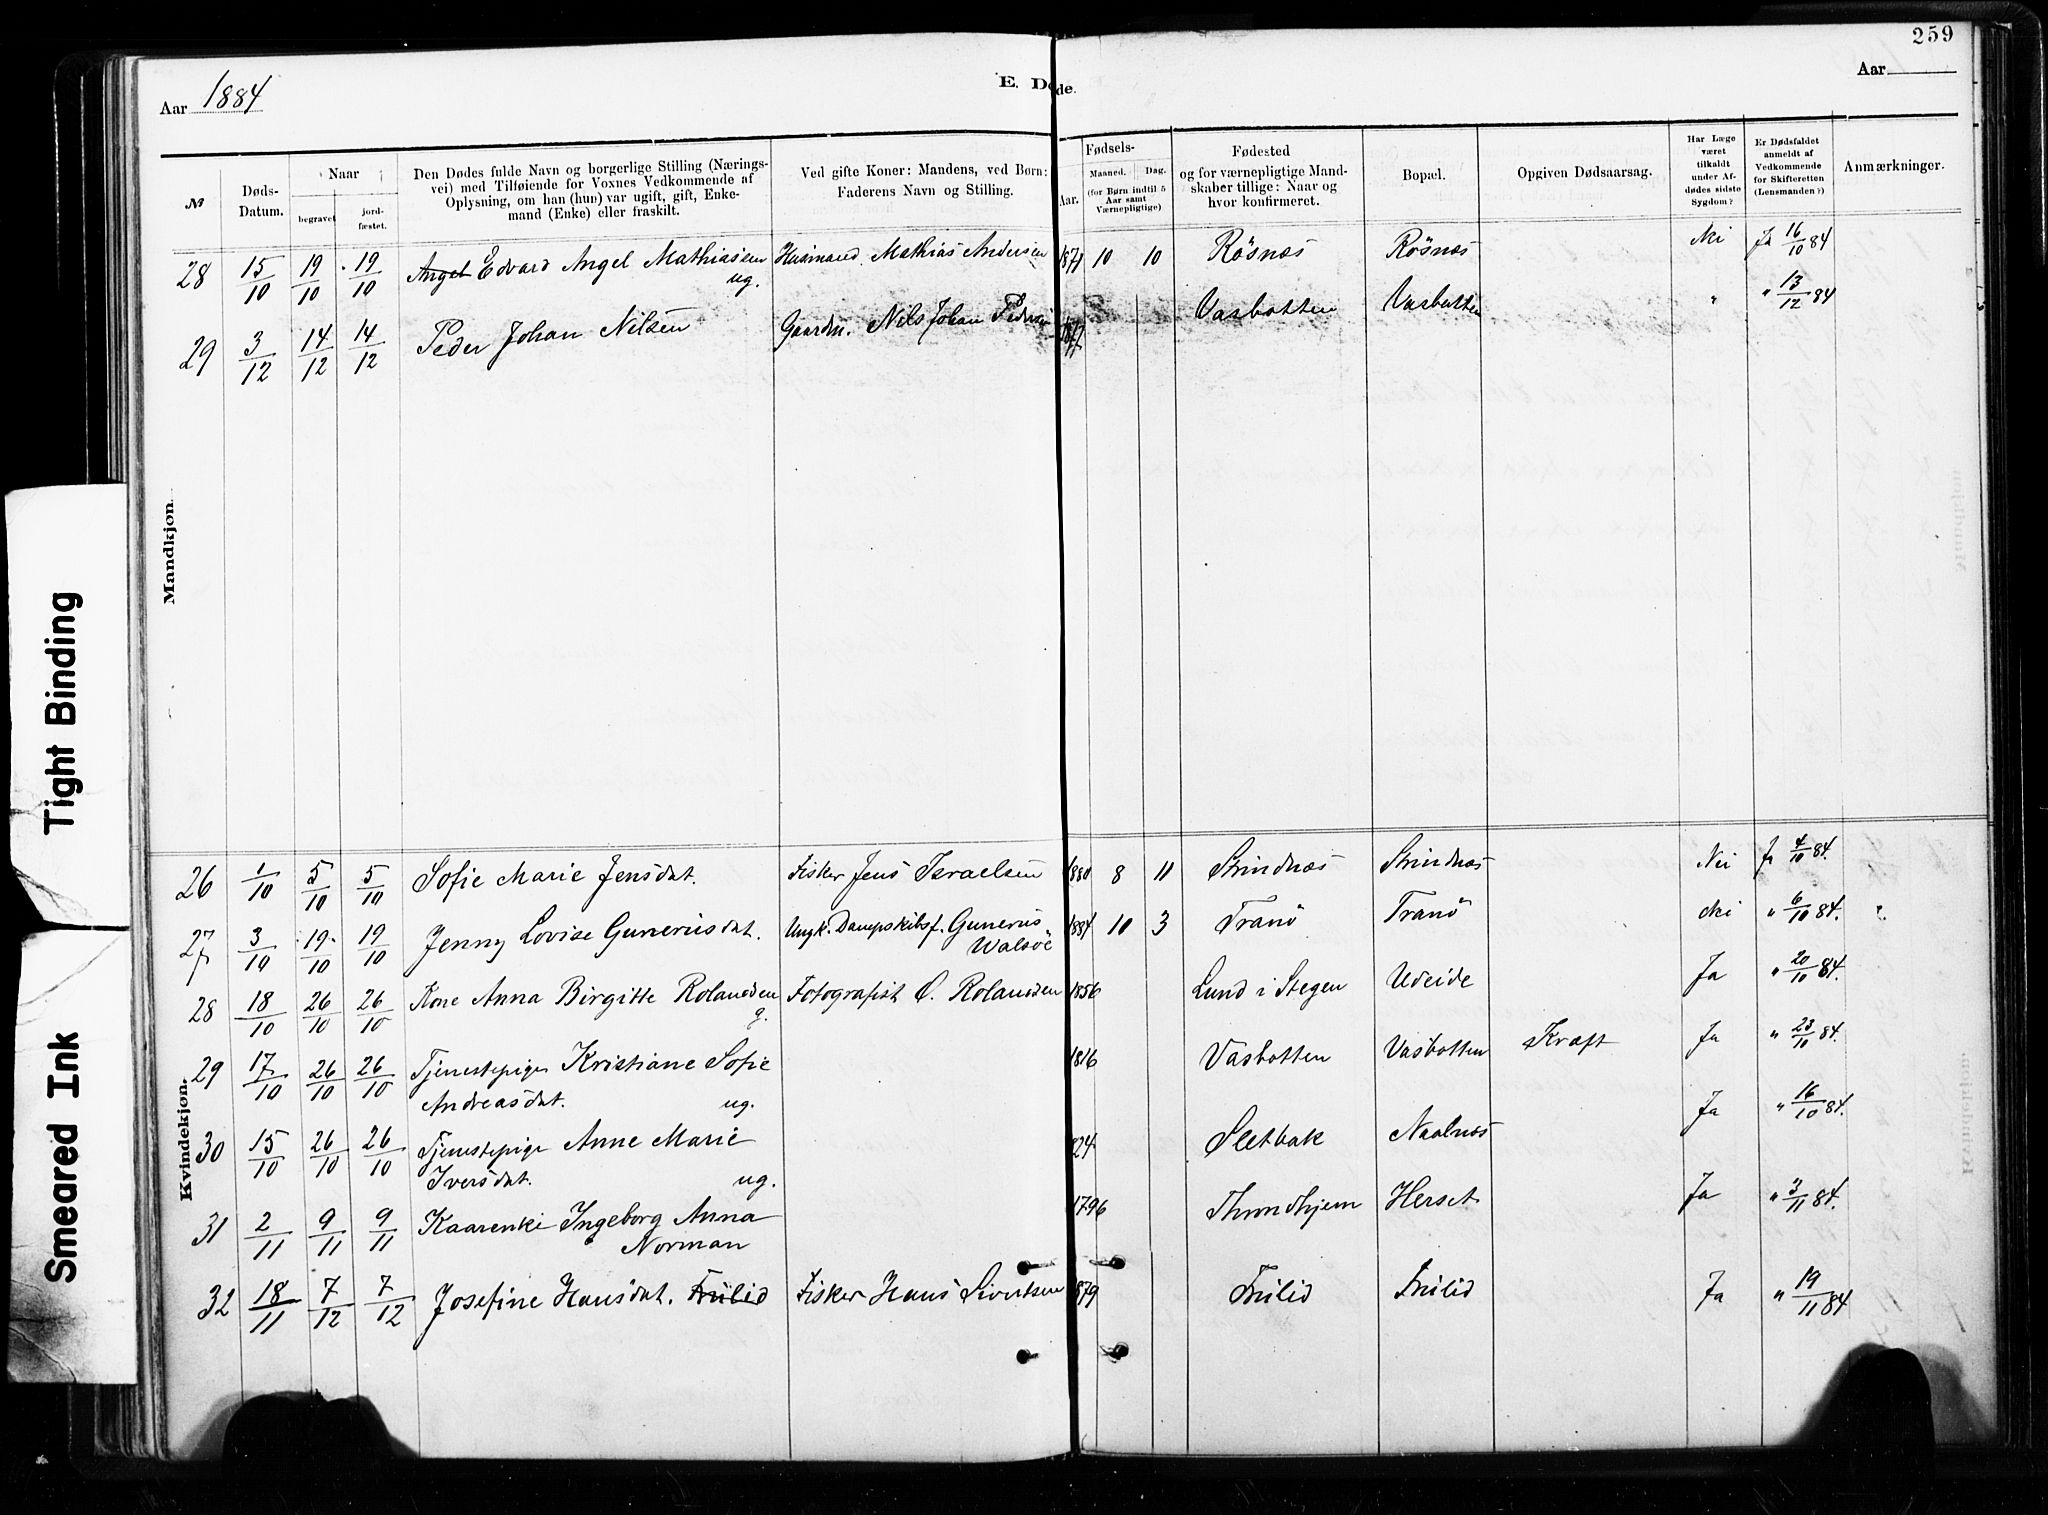 259
Aar 1884
E. Døde.
Aar
№
Døds-Datum.
Naar
begravet
jordfæstet.
Den Dødes fulde Navn og borgerlige Stilling (Næringsvei) med Tilføiende for Voxnes Vedkommende af Oplysning, om han (hun) var ugift, gift, Enkemand (Enke) eller fraskilt.
Ved gifte Koner: Mandens, ved Børn: Faderens Navn og Stilling.
Fødsels-
Aar.
Maaned. Dag.
(for Børn indtil 5 Aar samt Værnepligtige)
Fødested og for værnepligtige Mandskaber tillige: Naar og hvor konfirmeret.
Bopæl.
Opgiven Dødsaarsag.
Har Læge været tilkaldt under Afdødes sidste Sygdom?
Er Dødsfaldet anmeldt af Vedkommende for Skifteretten (Lensmanden?)
Anmærkninger.
Mandkjøn.
28 15/10 19/10 19/10 Angel Edvard Angel Mathiasen ug. Husmand Mathias Andersen 1871 10 10 Røsnæs Røsnæs Nei Ja 16/10 84
29 3/12 14/12 14/12 Peder Johan Nilsen Gaardm. Nils Johan Pedersen 1877 Vasbotten Vasbotten " " 13/12 84
Kvindekjøn.
26 1/10 5/10 5/10 Sofie Marie Jensdat. Fisker Jens Israelsen 1880 8 11 Strindnæs Strindnæs Nei Ja 4/10 84.
27 3/10 19/10 19/10 Jenny Lovise Guneriusdat. Ungk. Dampskibsf. Gunerius Walsøe 1884 10 3 Tranö Tranö Nei " 6/10 84.
28 18/10 26/10 26/10 Kone Anna Birgitte Rolandsen g. Fotografist O. Rolandsen 1856 Lund i Stegen Udeide Ja " 20/10 84.
29 17/10 26/10 26/10 Tjenestepige Kristiane Sofie Andreasdat. ug. 1816 Vasbotten Vasbotten Kræft Ja " 23/10 84.
30 15/10 26/10 26/10 Tjenestepige Anne Marie Iversdat. ug. 24 Sletbak Naalnæs Ja " 16/10 84.
31 2/11 9/11 9/11 Kaarenke Ingeborg Anna Norman 1796 Throndhjem Herset Ja " 3/11 84.
32 18/11 7/12 7/12 Josefine Hansdat. Frilid Fisker Hans Sivertsen 1879 Frilid Frilid Ja " 19/11 84
Tight Binding
Smeared Ink